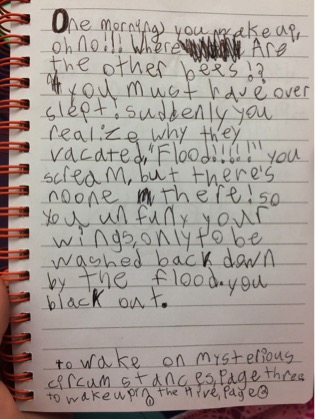 One morning, you wake up,
oh no!!! Where Are
the other bees!?
you must have over
slept. suddenly you
realize why they
vacated,"Flood!!!!!" you
scream, but there's
noone there! so
you unfurly your
wings, only to be
washed back down
by the flood. you
black out.
to wake on mysterious
circumstances, page three
to wake up in the Hive, page 2